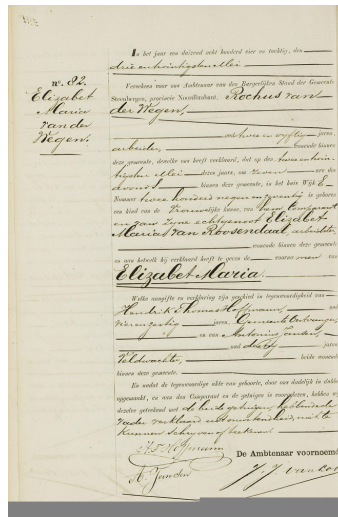 nº. 82.
Elizabet
Maria
van der
Wegen.
In het jaar een duizend acht honderd vier en tachtig, den
drie en twintigsten Mei
Verscheen voor ons Ambtenaar van den Burgerlijken Stand der Gemeente
Steenbergen, provincie Noordbrabant, Rochus van
der Wegen,
oud twee en vijftig jaren,
arbeider, woonende binnen
deze gemeente, dewelke ons heeft verklaard, dat op den twee en twin
tigsten Mei dezes jaars, om zeven ure des
avonds binnen deze gemeente, in het huis Wijk E
Nummer twee honderd negen en zeventig is geboren
een kind van de Vrouwelijke kunne, van hem Comparant
en van zijne echtgenoot Elizabet
Maria van Roosendaal, arbeidster,
woonende binnen deze gemeente
en aan hetwelk hij verklaard heeft te geven de voornamen van
Elizabet Maria.
Welke aangifte en verklaring zijn geschied in tegenwoordigheid van
Hendrik Thomas Hoffmann, oud
vier en zestig jaren, Gemeente Ontvanger,
en van Antonius Janden,
oud dertig jaren
Veldwachter, beide woonende
binnen deze gemeente.
En omdat de tegenwoordige akte van geboorte, door ons dadelijk in dubbel
opgemaakt, en aan den Comparant en de getuigen is voorgelezen, hebben wij
dezelve geteekend met de beide getuigen, hebbende de
vader verklaard uit onwetendheid, niet te
kunnen schrijven of teekenen.
H. T. Hoffmann
De Ambtenaar voornoemd
A. Janden
J. J. van